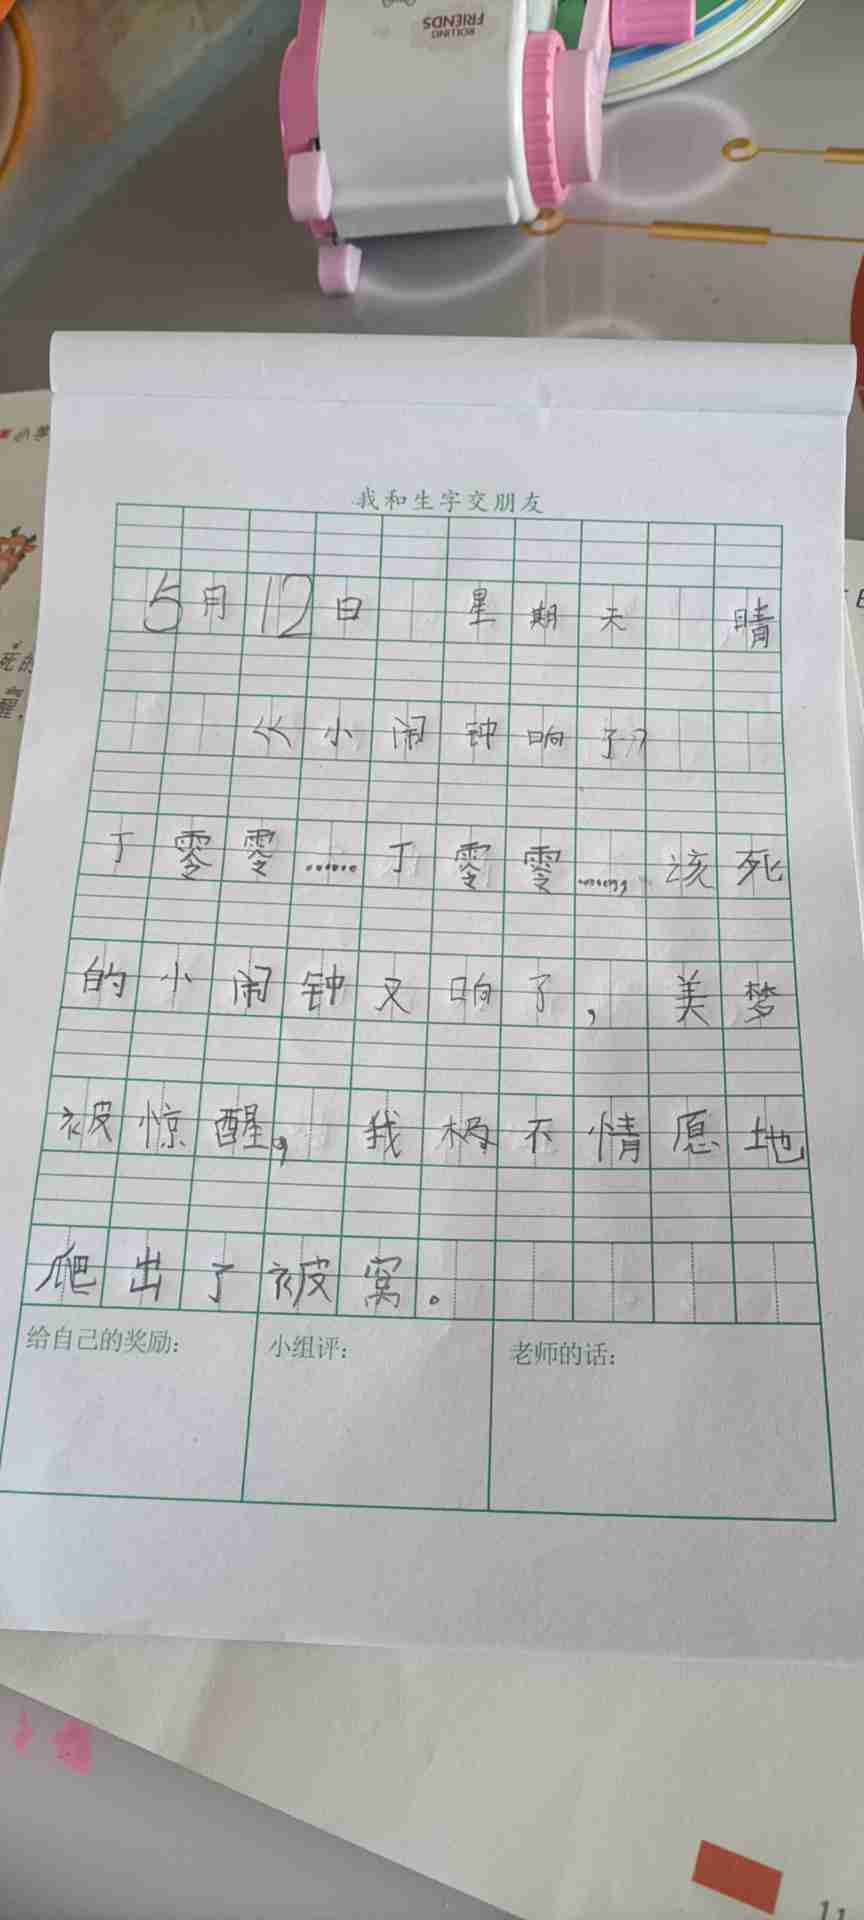 ROLLING
FRIENDS
我和生字交朋友
5月12日 星期天 晴
《小闹钟响了》
丁零零……丁零零……,该死
的小闹钟又响了,美梦
被惊醒,我极不情愿地
爬出了被窝。
给自己的奖励:
小组评:
老师的话:
死的
醒,
11